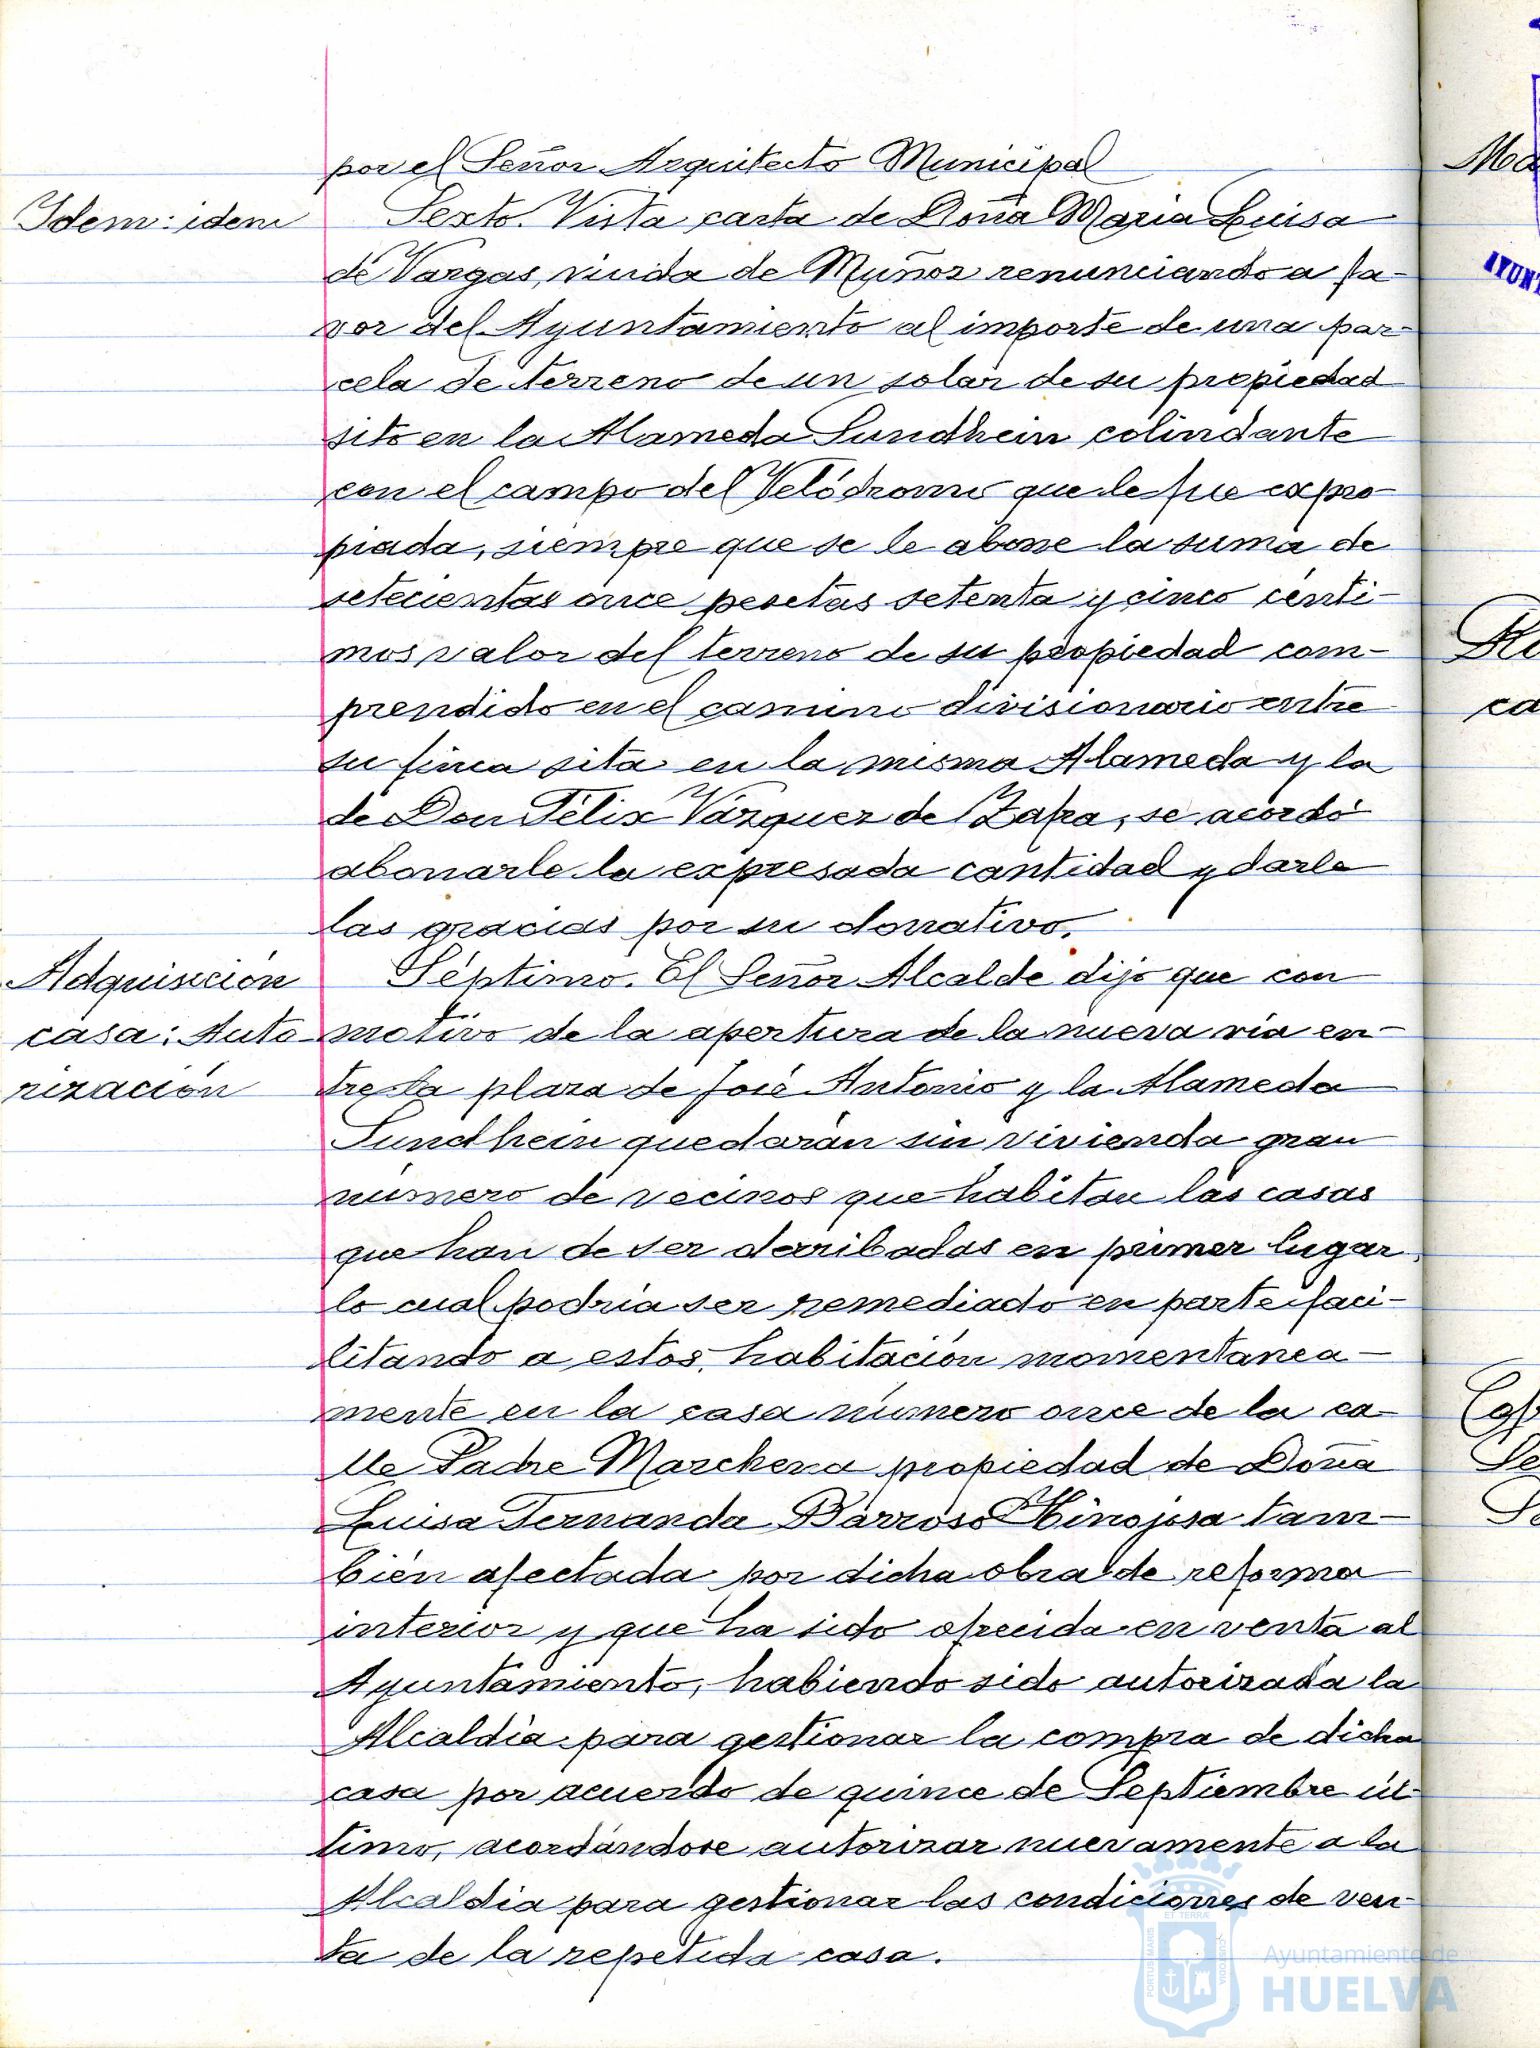 por el Señor Arquitecto Municipal
Idem: idem
Sexto. Vista carta de Doña Maria Luisa
de Vargas, viuda de Muñoz renunciando a fa-
vor del Ayuntamiento al importe de una par-
cela de terreno de un solar de su propiedad
sito en la Alameda Sundhein colindante
con el campo del Velódromo que le fue expro-
piada, siempre que se le abone la suma de
setecientas once pesetas setenta y cinco cénti-
mos valor del terreno de su propiedad com-
prendido en el camino divisionario entre
su finca sita en la misma Alameda y la
de Don Félix Vázquez de Zafra, se acordó
abonarle la expresada cantidad y darle
las gracias por su donativo.
Adquisición
casa: Auto-
rización
Séptimo. El Señor Alcalde dijo que con
motivo de la apertura de la nueva vía en-
tre la plaza de José Antonio y la Alameda
Sundhein quedarán sin vivienda gran
número de vecinos que habitan las casas
que han de ser derribadas en primer lugar,
lo cual podría ser remediado en parte faci-
litando a estos, habitación momentanea-
mente en la casa número once de la ca-
lle Padre Marchena propiedad de Doña
Luisa Fernanda Barroso Hinojosa tam-
bién afectada por dicha obra de reforma
interior y que ha sido ofrecida en venta al
Ayuntamiento, habiendo sido autorizada la
Alcaldía para gestionar la compra de dicha
casa por acuerdo de quince de Septiembre úl-
timo, acordándose autorizar nuevamente a la
Alcaldia para gestionar las condiciones de ven-
ta de la repetida casa.
Ayuntamiento de
HUELVA
AYUNT
ca